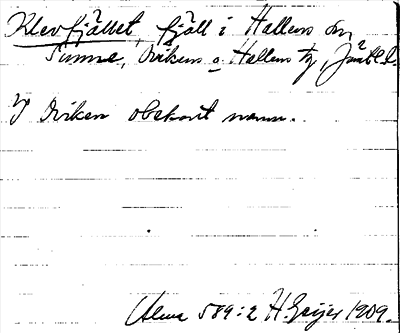 Klevfjället, fjäll i Hallens sn,
Sunne, Oviken o Hallens tg, Jämtl. l.
I Oviken obekant namn.
Ulma 589:2 H. Geijer 1909.